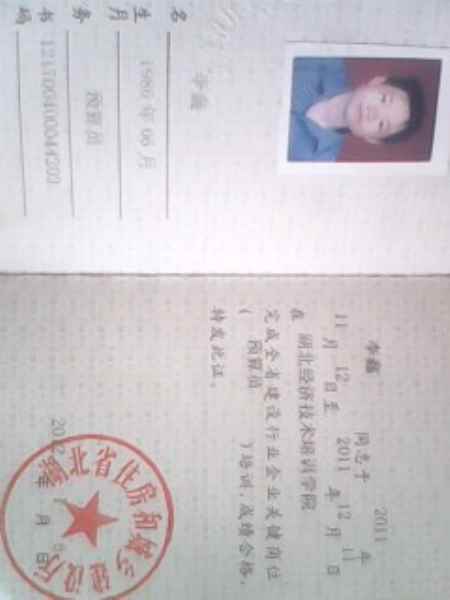 名 李鑫
生 月 1986 年 06 月
务 预算员
书 编
李鑫 同志于 2011 年
11 月 12 日至 2011 年 12 月 11 日
在 湖北经济技术培训学院
完成全省建设行业企业关键岗位
( 预算员 )培训,成绩合格,
特发此证。
湖北省住房和城乡建设厅
2012 年 月 日